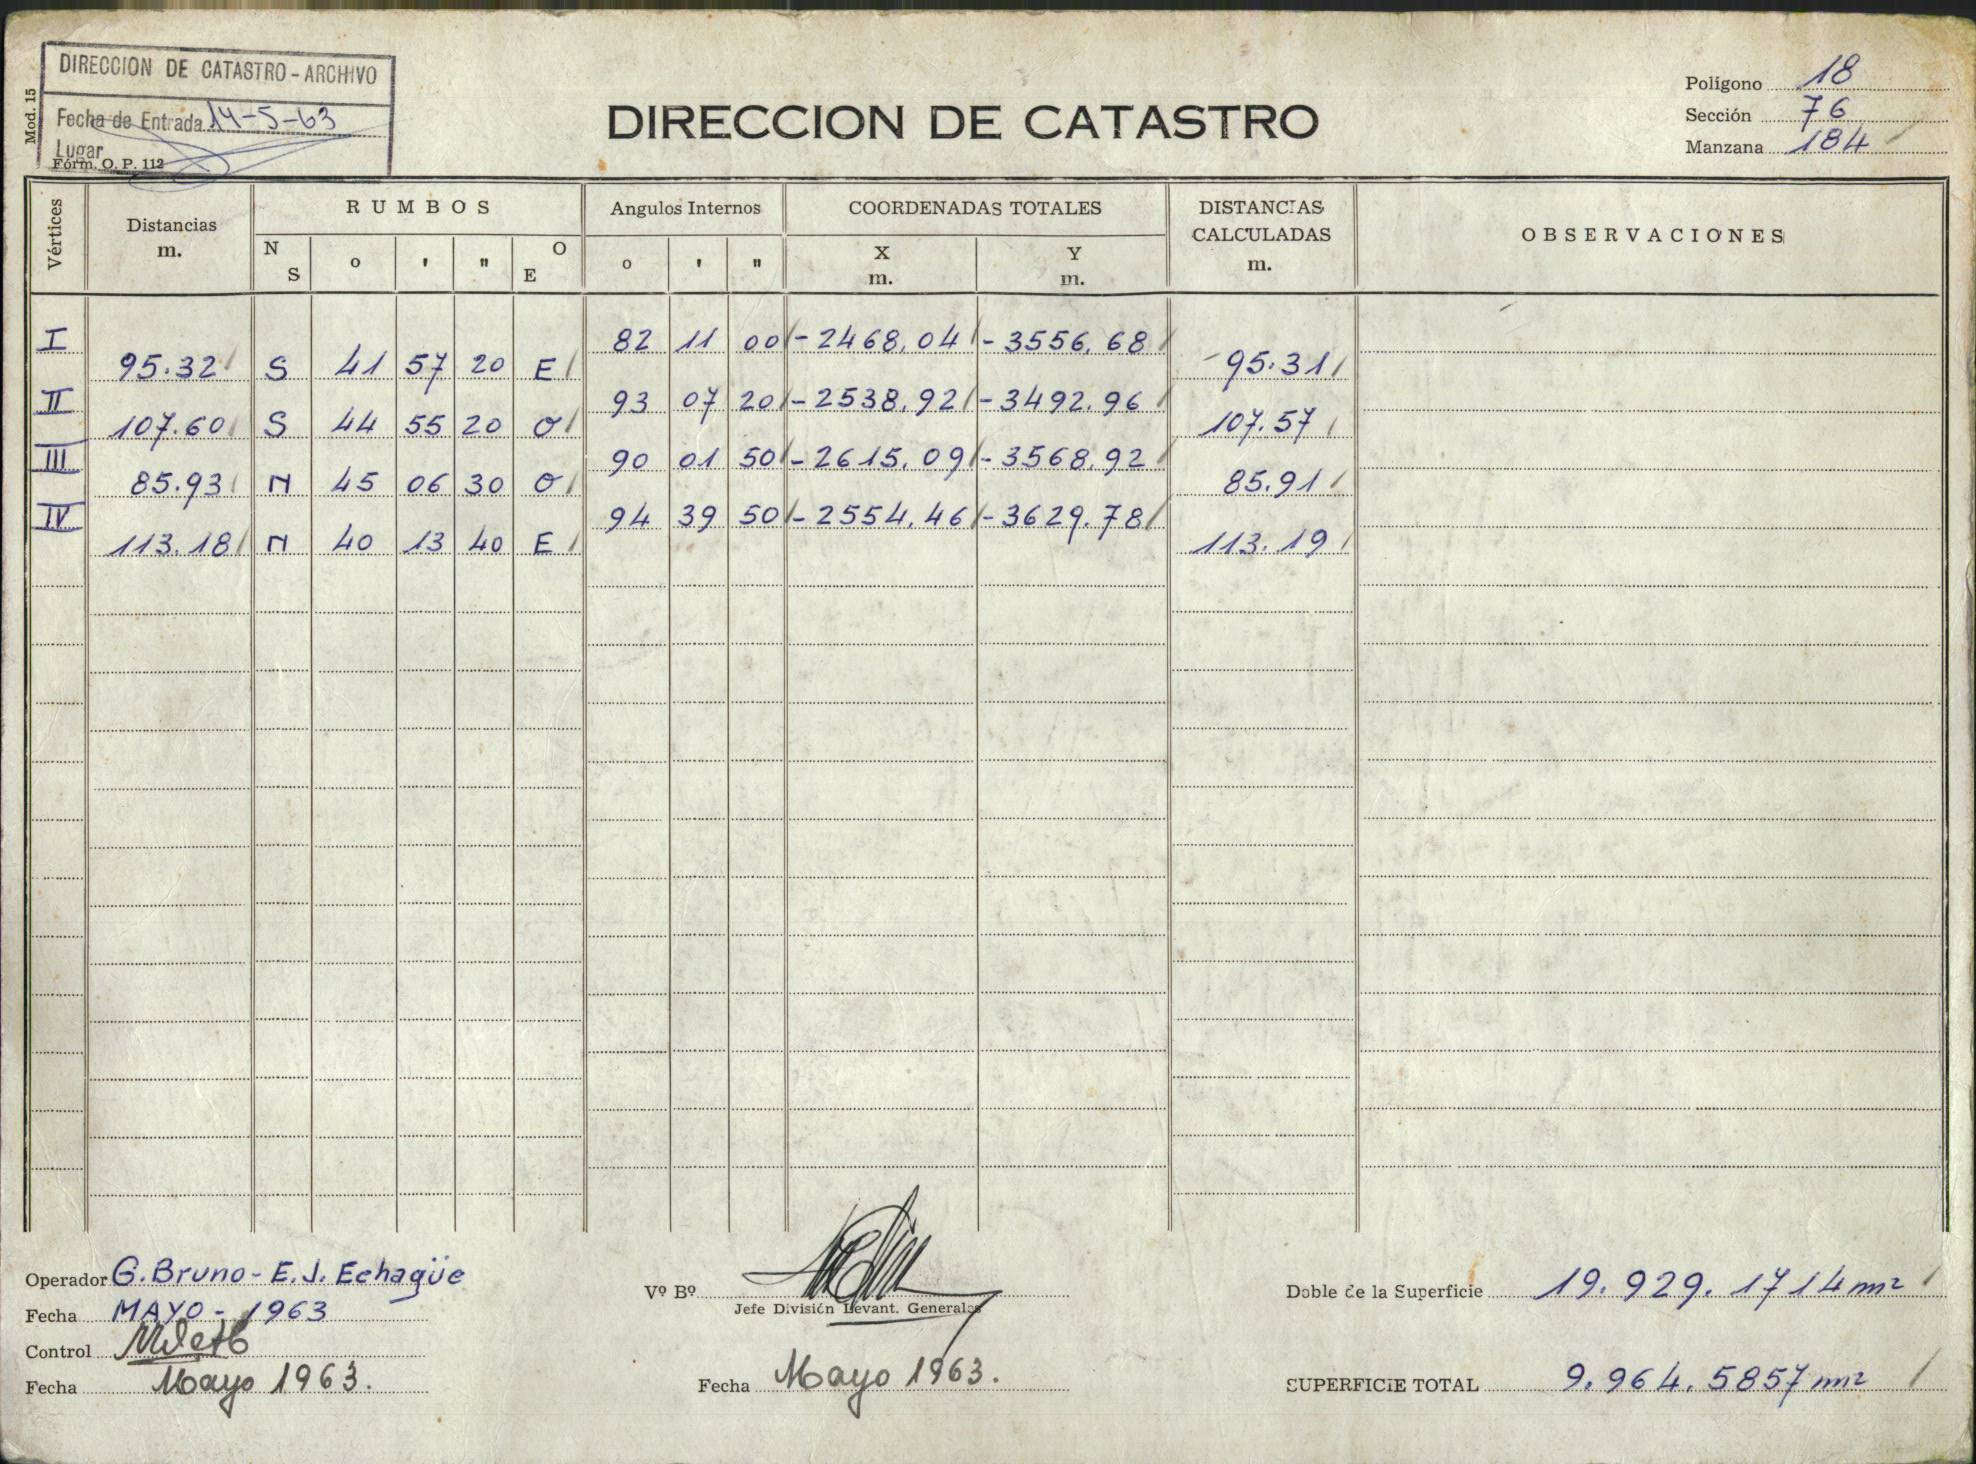 DIRECCION DE CATASTRO - ARCHIVO
Fecha de Entrada 14-5-63
Lugar
Mod. 15
Fórm. O. P. 112
DIRECCION DE CATASTRO
Polígono 18
Sección 76
Manzana 184
Vértices Distancias m. RUMBOS Angulos Internos COORDENADAS TOTALES DISTANCIAS CALCULADAS m. OBSERVACIONES
N S o ' " O E o ' " X m. Y m.
I 82 11 00 -2468,04 -3556,68
95.32 S 41 57 20 E 95.31
II 93 07 20 -2538,92 -3492,96
107.60 S 44 55 20 O 107.57
III 90 01 50 -2615,09 -3568,92
85.93 N 45 06 30 O 85.91
IV 94 39 50 -2554,46 -3629,78
113.18 N 40 13 40 E 113.19
Operador G. Bruno - E. J. Echagüe
Fecha MAYO - 1963
Control
Fecha Mayo 1963.
Vº Bº
Jefe División Levant. Generales
Fecha Mayo 1963.
Doble de la Superficie 19.929.1714 m²
SUPERFICIE TOTAL 9.964.5857 m²